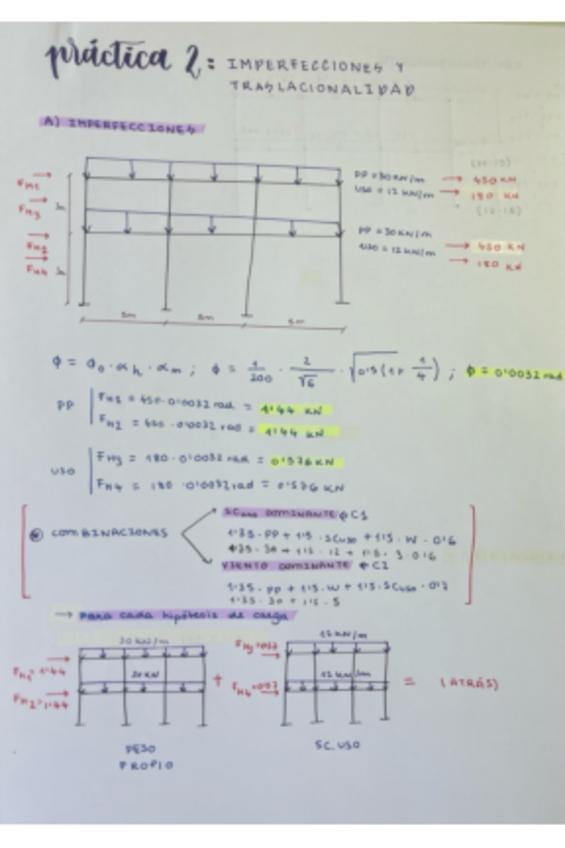 práctica 2: IMPERFECCIONES Y
TRASLACIONALIDAD
A) IMPERFECCIONES
PP = 30 KN/m → 450 KN
USO = 12 KN/m → 180 KN
(12-15)
PP = 30 KN/m → 450 KN
USO = 12 KN/m → 180 KN
FH1
FH3
FH2
FH4
3m
3m
5m
5m
5m
Φ = Φ0 · αh · αm ; Φ = 1/200 · 2/√6 · √0'5(1+ 1/4) ; Φ = 0'0032 rad
PP
FH1 = 450 · 0'0032 rad = 1'44 KN
FH2 = 450 · 0'0032 rad = 1'44 KN
USO
FH3 = 180 · 0'0032 rad = 0'576 KN
FH4 = 180 · 0'0032 rad = 0'576 KN
COMBINACIONES
SCuso DOMINANTE ← C1
1'35 · PP + 1'5 · SCuso + 1'5 · W · 0'6
1'35 · 30 + 1'5 · 12 + 1'5 · 5 · 0'6
VIENTO DOMINANTE ← C2
1'35 · PP + 1'5 · W + 1'5 · SCuso · 0'7
1'35 · 30 + 1'5 · 5
→ Para cada hipótesis de carga
30 KN/m
12 KN/m
FH1=1'44
30 KN
FH3=0'57
12 KN/m
FH2=1'44
+
FH4=0'57
= (ATRÁS)
PESO
PROPIO
SC.USO